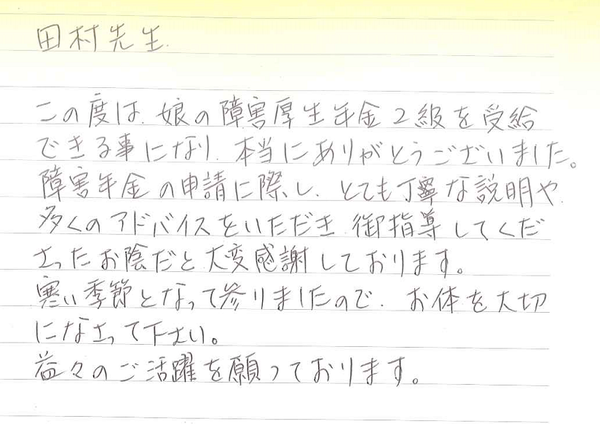 田村先生.
この度は、娘の障害厚生年金2級を受給
できる事になり、本当にありがとうございました。
障害年金の申請に際し、とても丁寧な説明や、
多くのアドバイスをいただき、御指導してくだ
さったお陰だと大変感謝しております。
寒い季節となって参りましたので、お体を大切
になさって下さい。
益々のご活躍を願っております。